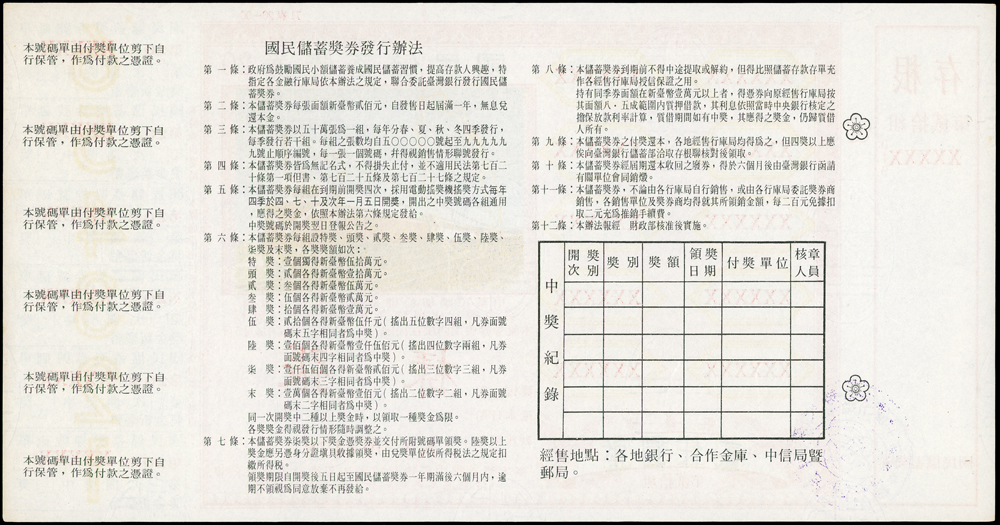 國民儲蓄獎券發行辦法
本號碼單由付獎單位剪下自
行保管，作爲付款之憑證。
本號碼單由付獎單位剪下自
行保管，作爲付款之憑證。
本號碼單由付獎單位剪下自
行保管，作爲付款之憑證。
本號碼單由付獎單位剪下自
行保管，作爲付款之憑證。
本號碼單由付獎單位剪下自
行保管，作爲付款之憑證。
本號碼單由付獎單位剪下自
行保管，作爲付款之憑證。
第一條：政府爲鼓勵國民小額儲蓄養成國民儲蓄習慣，提高存款人興趣，特
指定各金融行庫局依本辦法之規定，聯合委託臺灣銀行發行國民儲
蓄獎券。
第二條：本儲蓄獎券每張面額新臺幣貳佰元，自發售日起屆滿一年，無息兌
還本金。
第三條：本儲蓄獎券以五十萬張爲一組，每年分春、夏、秋、冬四季發行，
每季發行若干組。每組之張數均自五〇〇〇〇〇號起至九九九九九
九號止順序編號，每一張一個號碼，幷得視銷售情形聯號發行。
第四條：本儲蓄獎券皆爲無記名式，不得掛失止付，並不適用民法第七百二
十條第一項但書、第七百二十五條及第七百二十七條之規定。
第五條：本儲蓄獎券每組在到期前開獎四次，採用電動搖獎機搖獎方式每年
四季於四、七、十及次年一月五日開獎，開出之中獎號碼各組通用
，應得之獎金，依照本辦法第六條規定發給。
中獎號碼於開獎翌日登報公告之。
第六條：本儲蓄獎券每組設特獎、頭獎、貳獎、叁獎、肆獎、伍獎、陸獎、
柒獎及末獎，各獎獎額如次：
特　獎：壹個獨得新臺幣伍拾萬元。
頭　獎：貳個各得新臺幣壹拾萬元。
貳　獎：叁個各得新臺幣伍萬元。
叁　獎：伍個各得新臺幣貳萬元。
肆　獎：拾個各得新臺幣壹萬元。
伍　獎：貳拾個各得新臺幣伍仟元（搖出五位數字四組，凡券面號
碼末五字相同者爲中獎）。
陸　獎：壹佰個各得新臺幣壹仟伍佰元（搖出四位數字兩組，凡券
面號碼末四字相同者爲中獎）。
柒　獎：壹仟伍佰個各得新臺幣貳佰元（搖出三位數字三組，凡券
面號碼末三字相同者爲中獎）。
末　獎：壹萬個各得新臺幣壹佰元（搖出二位數字二組，凡券面號
碼末二字相同者爲中獎）。
同一次開獎中二種以上獎金時，以領取一種獎金爲限。
各獎獎金得視發行情形隨時調整之。
第七條：本儲蓄獎券柒獎以下獎金憑獎券並交付所附號碼單領獎。陸獎以上
獎金應另憑身分證填具收據領獎，由兌獎單位依所得稅法之規定扣
繳所得稅。
領獎期限自開獎後五日起至國民儲蓄獎券一年期滿後六個月內，逾
期不領視爲同意放棄不再發給。
第八條：本儲蓄獎券到期前不得中途提取或解約，但得比照儲蓄存款存單充
作各經售行庫局授信保證之用。
持有同季券面額在新臺幣壹萬元以上者，得憑券向原經售行庫局按
其面額八．五成範圍內質押借款，其利息依照當時中央銀行核定之
擔保放款利率計算，質借期間如有中獎，其應得之獎金，仍歸質借
人所有。
第九條：本儲蓄獎券之付獎還本，各地經售行庫局均得爲之，但四獎以上應
俟向臺灣銀行儲蓄部洽取存根聯核對後領取。
第十條：本儲蓄獎券經屆期還本收回之廢券，得於六個月後由臺灣銀行函請
有關單位會同銷燬。
第十一條：本儲蓄獎券，不論由各行庫局自行銷售，或由各行庫局委託獎券商
銷售，各銷售單位及獎券商均得就其所領銷金額，每二百元免據扣
取二元充爲推銷手續費。
第十二條：本辦法報經　財政部核准後實施。
中獎紀錄
開獎次別
獎別
獎額
領獎日期
付獎單位
核章人員
經售地點：各地銀行、合作金庫、中信局暨
郵局。